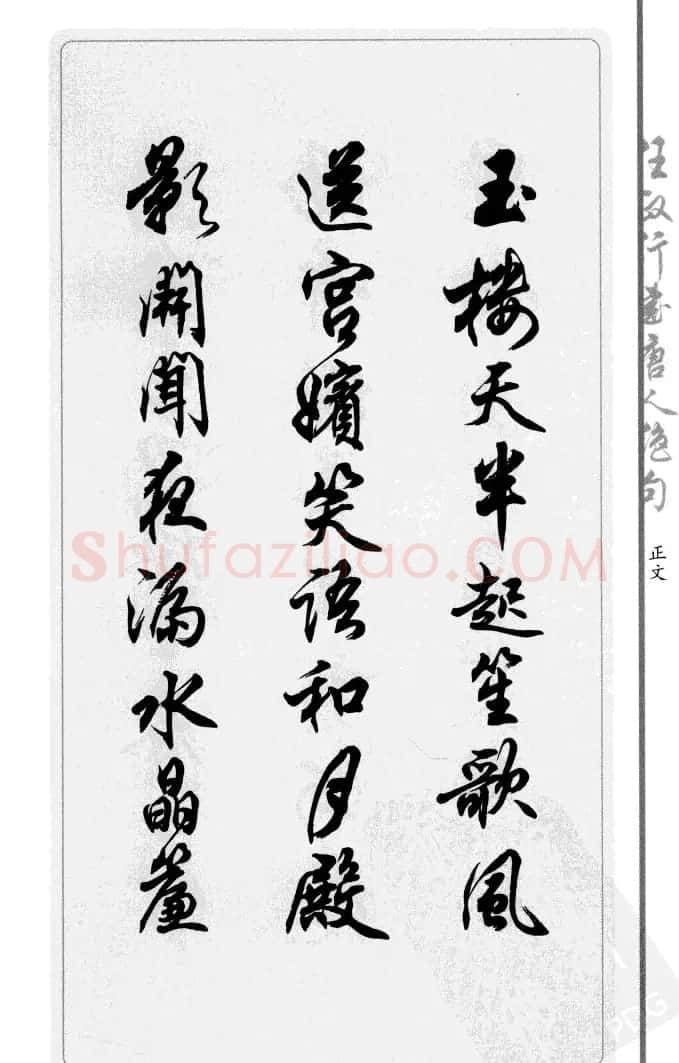 任政行書唐人絕句
正文
玉樓天半起笙歌風
送宮嬪笑語和月殿
影開聞夜漏水晶簾
Shufaziliao.COM
PDG